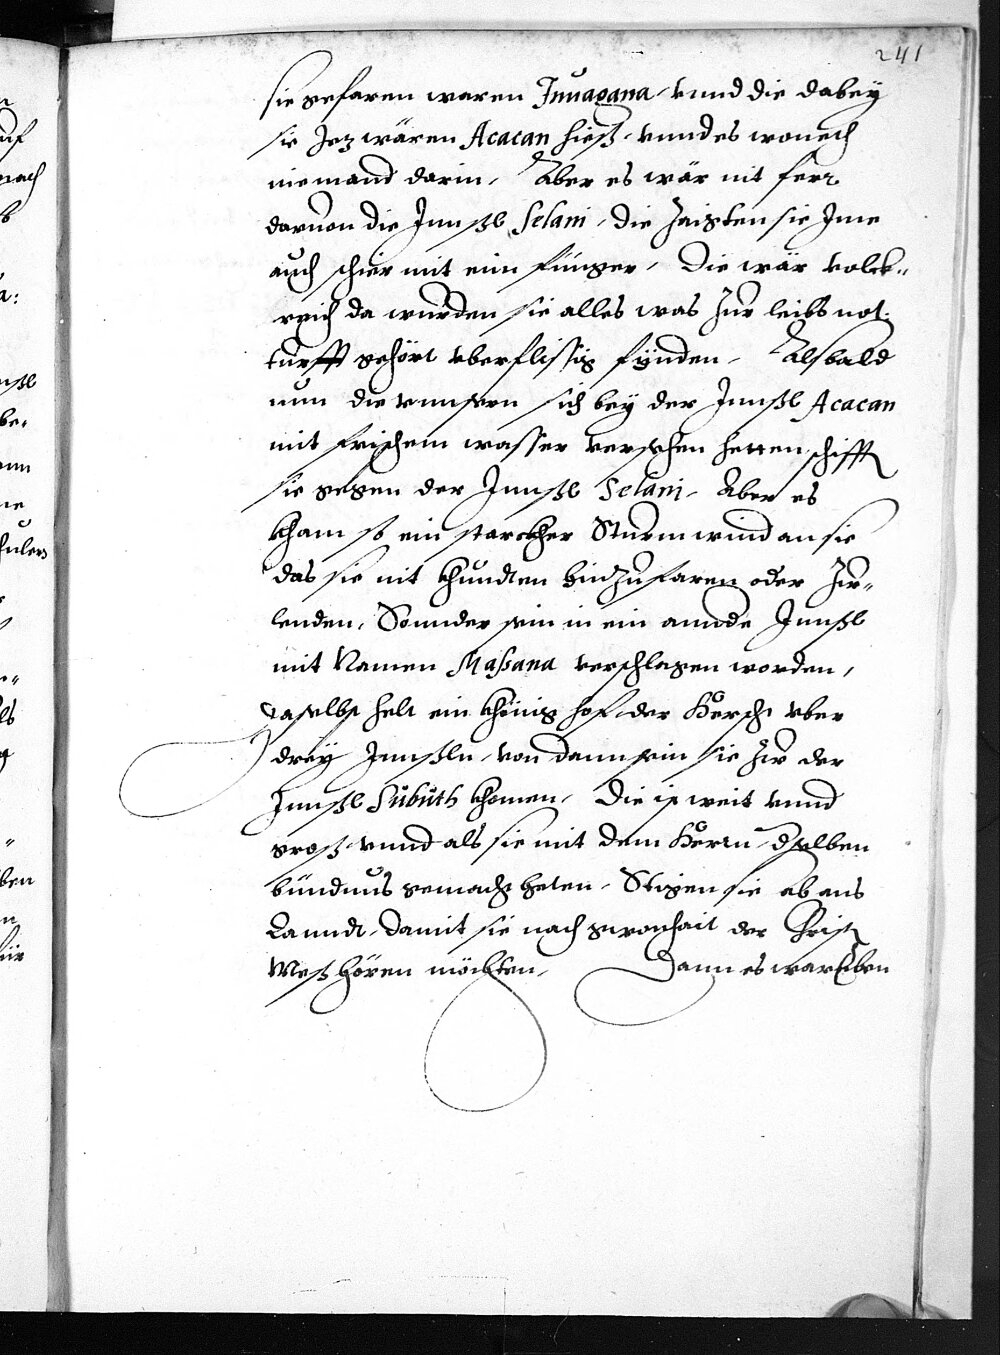 241
sie gefaren waren Inuagana, vnnd die dabey
sie Jez wären Acacan hieß, vnnd es wonech
niemand darin, Aber es wär nit ferr
daruon die Innßl Selani, die Zaigten sie Ime
auch schier mit eim finnger, Die wär volck-
reich da wurden sie alles was zur leibs not-
turfft gehört vberflissig fynden, Alsbald
nun die vnnsern sich bey der Innßl Acacan
mit frischem wasser versehen hetten schifften
sie gegen der Innßl Selani, Aber es
kham so ein starckher Sturmwind an sie
das sie nit khundten hinzufaren oder Zu-
lenden, Sonnder sein in ein annde Innßl
mit Namen Maßana verschlagen worden,
daselbst helt ein khönig hof der Hersch vber
drey Innßln, von dann sein sie zu der
Innßl Subuth khomen, Die ist weit vnnd
groß, vnnd als sie mit dem Herrn desselben
bündnus gemacht heten, Stigen sie ab ans
Lanndt, damit sie nach gewonhait der Christen
Meß hören möchten, Dann es war eben